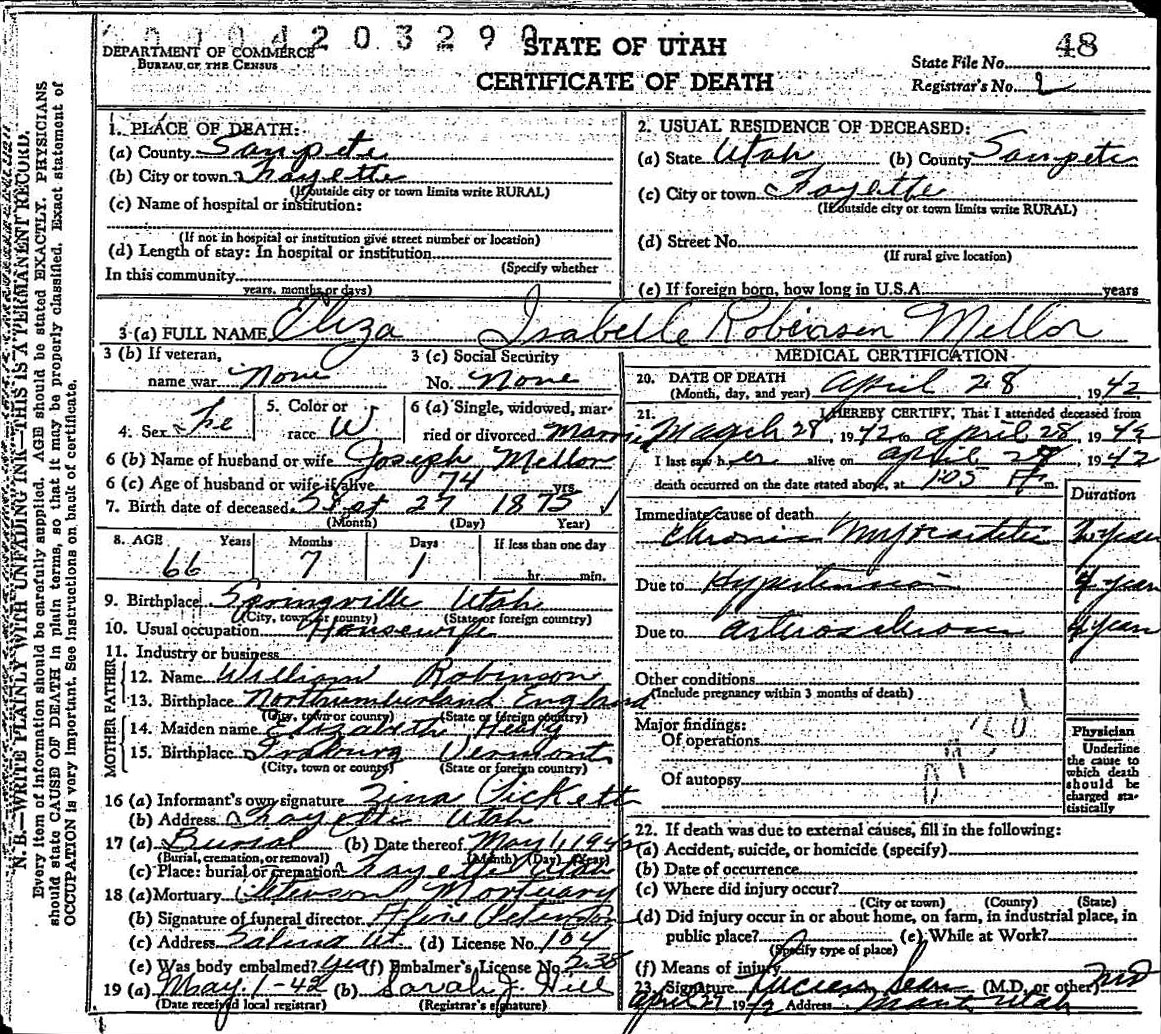 DEPARTMENT OF COMMERCE
BUREAU OF THE CENSUS
4203290
STATE OF UTAH
CERTIFICATE OF DEATH
48
State File No.
Registrar's No. 2
N. B.—WRITE PLAINLY WITH UNFADING INK—THIS IS A PERMANENT RECORD.
Every item of information should be carefully supplied. AGE should be stated EXACTLY. PHYSICIANS
should state CAUSE OF DEATH in plain terms, so that it may be properly classified. Exact statement of
OCCUPATION is very important. See instructions on back of certificate.
1. PLACE OF DEATH:
(a) County Sanpete
(b) City or town Fayette
(If outside city or town limits write RURAL)
(c) Name of hospital or institution:
(If not in hospital or institution give street number or location)
(d) Length of stay: In hospital or institution
(Specify whether
In this community
years, months or days)
2. USUAL RESIDENCE OF DECEASED:
(a) State Utah (b) County Sanpete
(c) City or town Fayette
(If outside city or town limits write RURAL)
(d) Street No.
(If rural give location)
(e) If foreign born, how long in U.S.A. years
3 (a) FULL NAME Eliza Isabelle Robinson Mellor
3 (b) If veteran,
name war None
3 (c) Social Security
No. None
4. Sex Fe
5. Color or
race W
6 (a) Single, widowed, mar-
ried or divorced Married
6 (b) Name of husband or wife Joseph Mellor
6 (c) Age of husband or wife if alive 74 yrs.
7. Birth date of deceased Sept 27 1875
(Month) (Day) Year)
8. AGE Years Months Days If less than one day
66 7 1 hr. min.
9. Birthplace Springville Utah
(City, town or county) (State or foreign country)
10. Usual occupation Housewife
11. Industry or business
FATHER
12. Name William Robinson
13. Birthplace Northumberland England
(City, town or county) (State or foreign country)
MOTHER
14. Maiden name Elizabeth
15. Birthplace Vermont
(City, town or county) (State or foreign country)
16 (a) Informant's own signature Zina Pickett
(b) Address Fayette Utah
17 (a) Burial (b) Date thereof May 1 1942
(Burial, cremation, or removal) (Month) (Day) (Year)
(c) Place: burial or cremation Fayette Utah
18 (a) Mortuary Mortuary
(b) Signature of funeral director
(c) Address Salina Ut. (d) License No. 104
(e) Was body embalmed? yes (f) Embalmer's License No. 238
19 (a) May 1-42 (b) Sarah J. Hill
(Date received local registrar) (Registrar's signature)
MEDICAL CERTIFICATION
20. DATE OF DEATH April 28, 1942
(Month, day, and year)
21. I HEREBY CERTIFY, That I attended deceased from
March 28, 1942 to April 28, 1942
I last saw her alive on April 28, 1942
death occurred on the date stated above, at 1:05 m.
Duration
Immediate cause of death
Chronic Myocarditis year
Due to Hypertension 4 year
Due to Arteriosclerosis 4 year
Other conditions
(Include pregnancy within 3 months of death)
Major findings:
Of operations
Of autopsy
Physician
Underline
the cause to
which death
should be
charged sta-
tistically
22. If death was due to external causes, fill in the following:
(a) Accident, suicide, or homicide (specify)
(b) Date of occurrence
(c) Where did injury occur?
(City or town) (County) (State)
(d) Did injury occur in or about home, on farm, in industrial place, in
public place? (e) While at Work?
(Specify type of place)
(f) Means of injury
23. Signature Lucien Sears (M.D. or other) MD
April 29 1942 Address Manti Utah